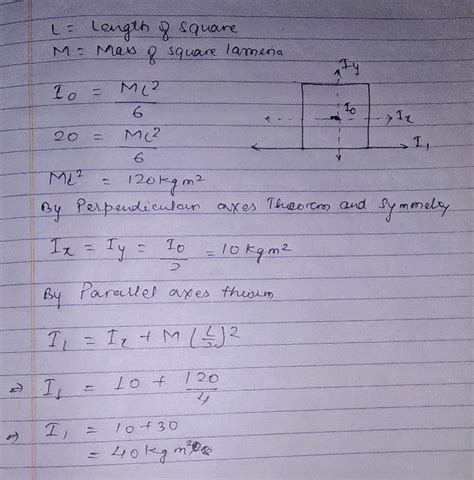 L = Length of square
M = Mass of square lameria
I₀ = ML²/6
20 = ML²/6
ML² = 120kgm²
By Perpendicular axes Theorem and Symmetry
Ix = Iy = I₀/2 = 10kgm²
By Parallel axes theorm
I₁ = Ix + M(L/2)²
⇒ I₁ = 10 + 120/4
⇒ I₁ = 10+30
= 40kgm²
Iy
I₀
Ix
I₁